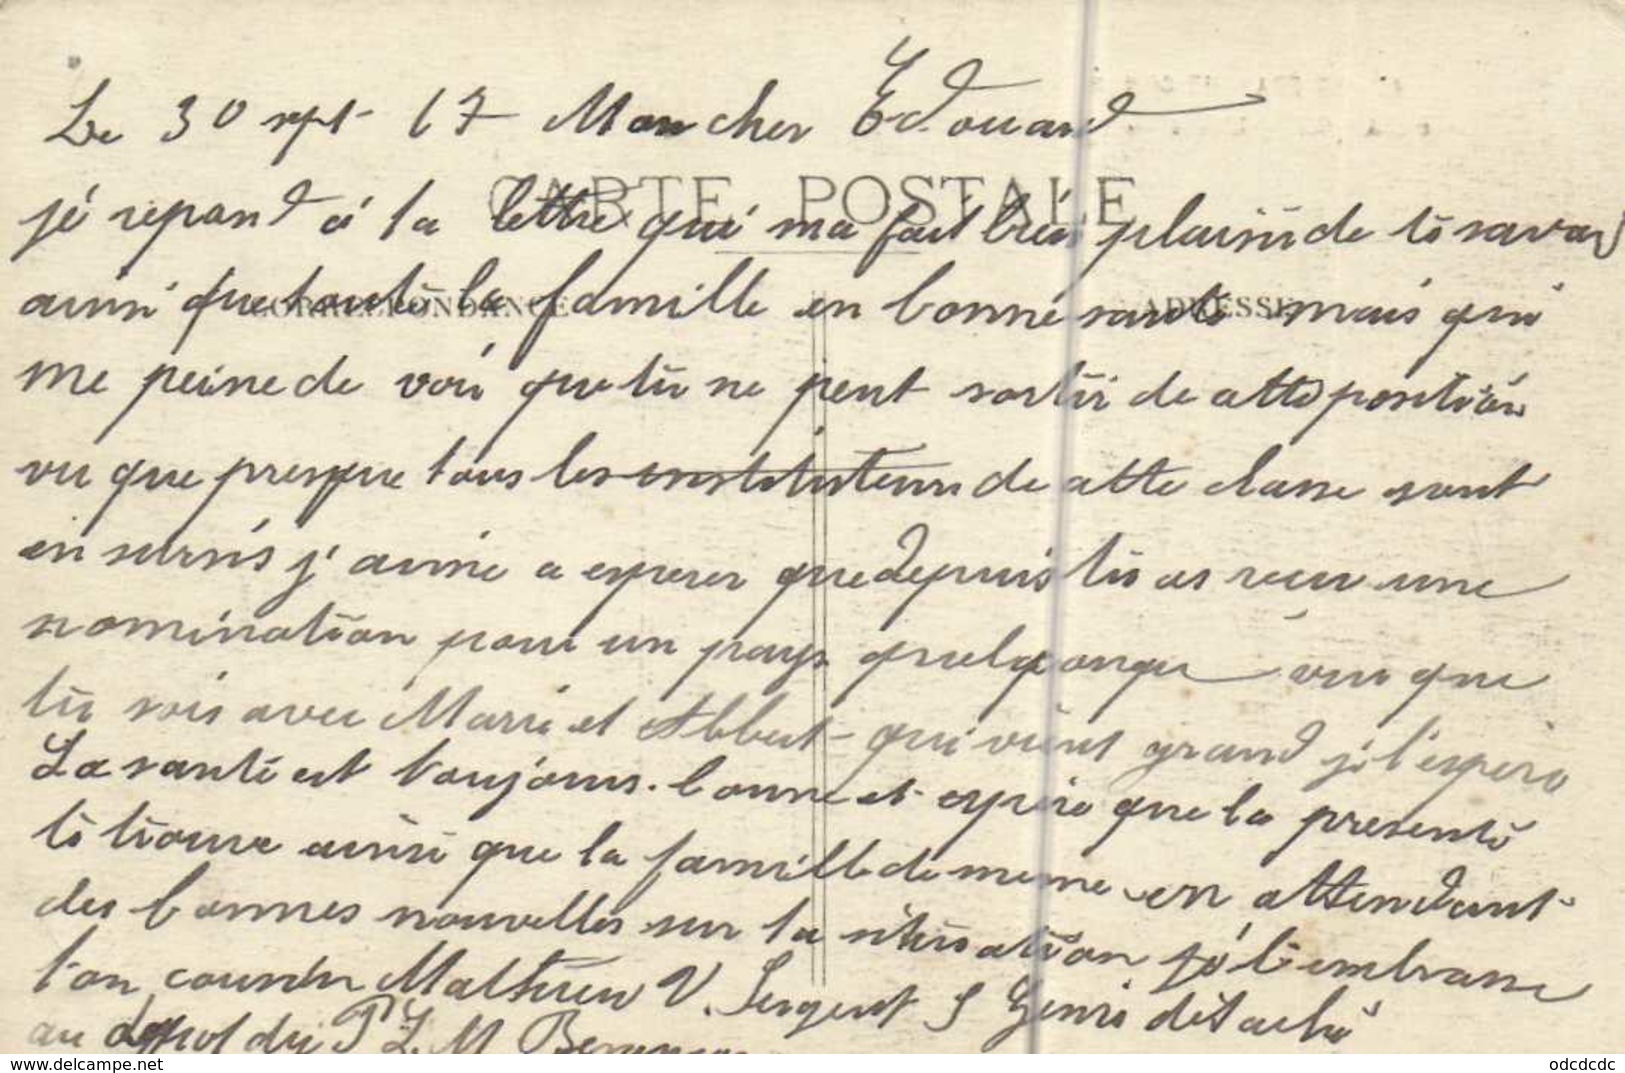 Le 30 sept 17 Mon cher Edouard
CARTE POSTALE
je repond a ta lettre qui ma fait très plaisir de te savoir
CORRESPONDANCE ADRESSE
ainsi que toute la famille en bonne santé mais qui
me peine de voir que tu ne peut sortir de cette position
vu que presque tous les instituteurs de cette classe sont
en sursis j'aime a esperer que depuis tu as recu une
nomination pour un pays quelqonque vu que
tu sois avec Marie et Albert qui vient grand je l'espere
La santé est toujours bonne et espère que la presente
te trouve ainsi que la famille de meme en attendant
des bonnes nouvelles sur ta situation je t'embrasse
ton cousin Mathieu V. Sergent 5 Genie détaché
au depot du P.L.M
delcampe.net
odcdcdc